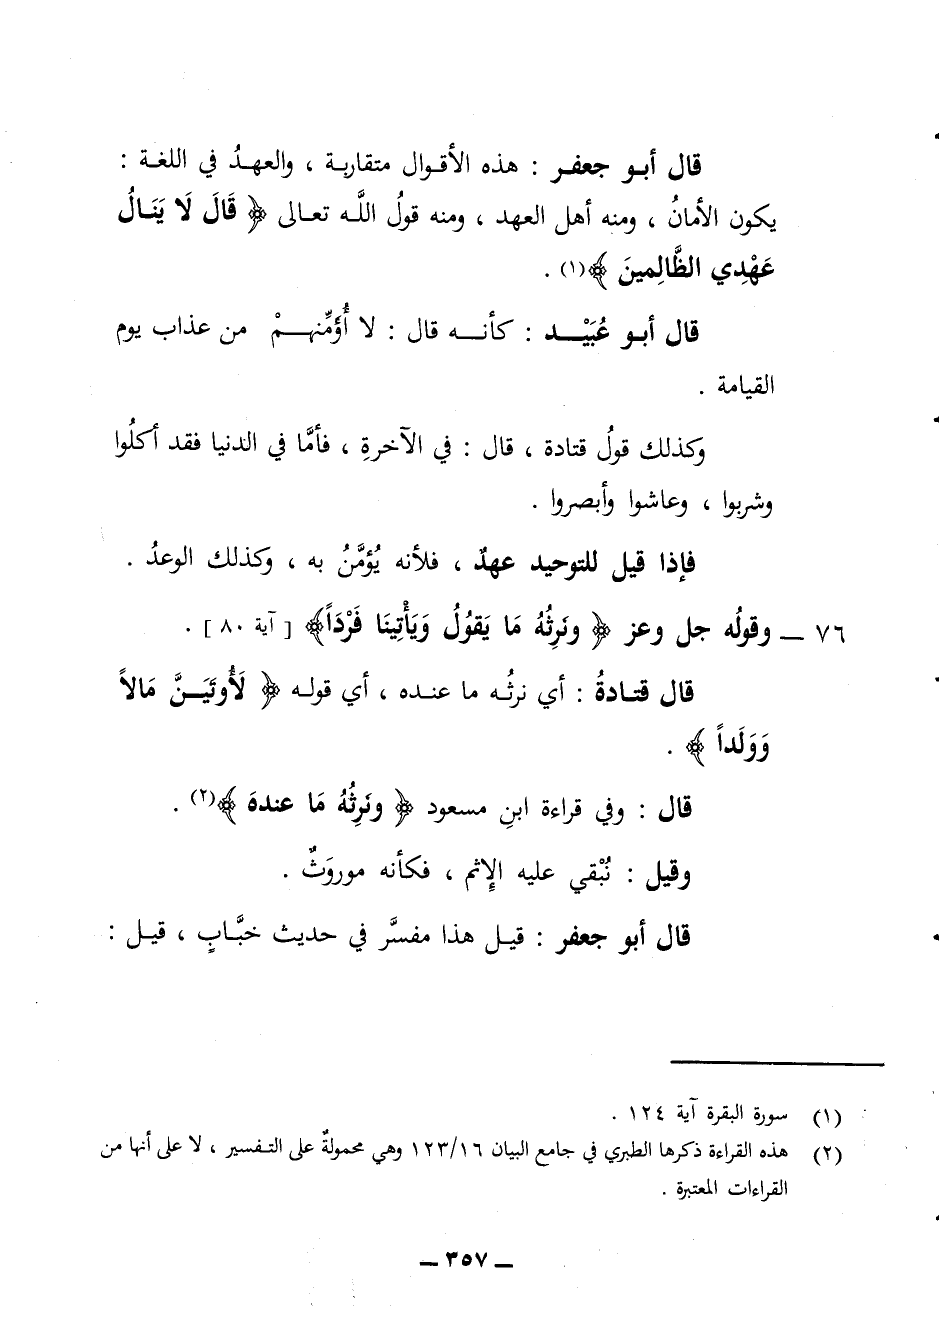 قال أبو جعفر : هذه الأقوال متقاربة ، والعهدُ في اللغة :
يكون الأمانُ ، ومنه أهل العهد ، ومنه قولُ اللَّه تعالى ﴿ قَالَ لَا يَنَالُ
عَهْدِي الظَّالِمِينَ ﴾(١) .
قال أبو عُبَيْد : كأنه قال : لا أُؤَمِّنهمْ من عذاب يوم
القيامة .
وكذلك قولُ قتادة ، قال : في الآخرةِ ، فأمَّا في الدنيا فقد أكلُوا
وشربوا ، وعاشوا وأبصروا .
فإذا قيل للتوحيد عهدٌ ، فلأنه يُؤمَّنُ به ، وكذلك الوعدُ .
٧٦ ــ وقولُه جل وعز ﴿ ونَرِثُهُ مَا يَقُولُ وَيَأْتِينَا فَرْدَاً﴾ [ آية ٨٠ ] .
قال قتادةُ : أي نرثُه ما عنده ، أي قوله ﴿ لَأُوتَيَنَّ مَالاً
وَوَلَداً ﴾ .
قال : وفي قراءة ابنِ مسعود ﴿ ونَرِثُهُ مَا عندهَ ﴾(٢) .
وقيل : نُبْقي عليه الإِثم ، فكأنه موروَثٌ .
قال أبو جعفر : قيل هذا مفسَّر في حديث خبَّابٍ ، قيل :
(١) سورة البقرة آية ١٢٤ .
(٢) هذه القراءة ذكرها الطبري في جامع البيان ١٢٣/١٦ وهي محمولةٌ على التفسير ، لا على أنها من
القراءات المعتبرة .
ــ ٣٥٧ ــ